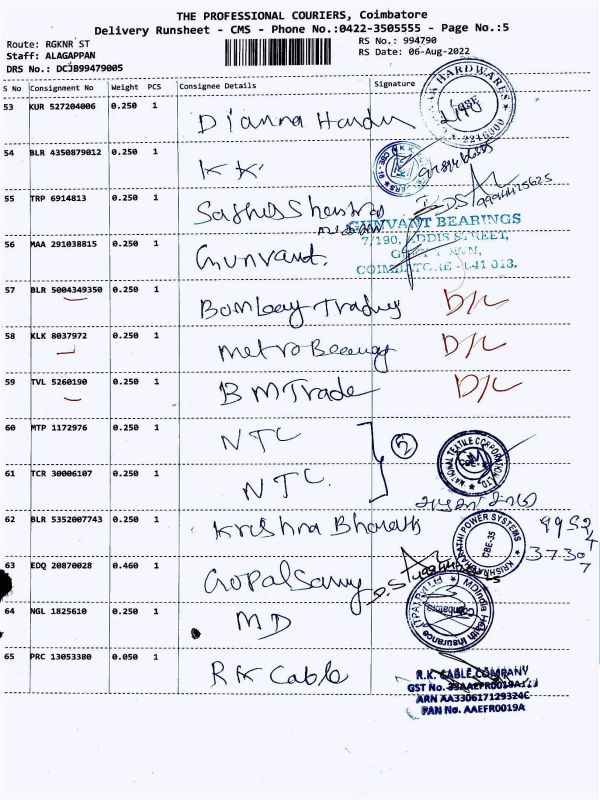 THE PROFESSIONAL COURIERS, Coimbatore
Delivery Runsheet - CMS - Phone No.:0422-3505555 - Page No.:5
Route: RGKNR ST
RS No.: 994790
Staff: ALAGAPPAN
RS Date: 06-Aug-2022
DRS No.: DCJB99479005
S No Consignment No Weight PCS Consignee Details Signature
53 KUR 527204006 0.250 1
HARDWARES
2216000
54 BLR 4350879012 0.250 1 KK
55 TRP 6914813 0.250 1
9994425625
GUNVANT BEARINGS
56 MAA 291038815 0.250 1 Gunvant.
7/190, STREET,
COIMBATORE - 641 018.
57 BLR 5004349350 0.250 1 Bombay Trading D/L
58 KLK 8037972 0.250 1 Metro D/L
59 TVL 5260190 0.250 1 BM Trade D/L
60 MTP 1172976 0.250 1 NTC 2
NATIONAL TEXTILE CORPORATION LTD.
61 TCR 30006107 0.250 1 NTC.
62 BLR 5352007743 0.250 1 Krishna Bharath
KRISHNABHARATHI POWER SYSTEMS
CBE-35
63 EDQ 20870028 0.460 1 Gopalsamy
64 NGL 1825610 0.250 1 MD
MDIndia Health Insurance (TPA) P LTD
Coimbatore
65 PRC 13053380 0.050 1 RK Cable
R.K. CABLE COMPANY
GST No.
ARN AA330617129324C
PAN No. AAEFR0019A